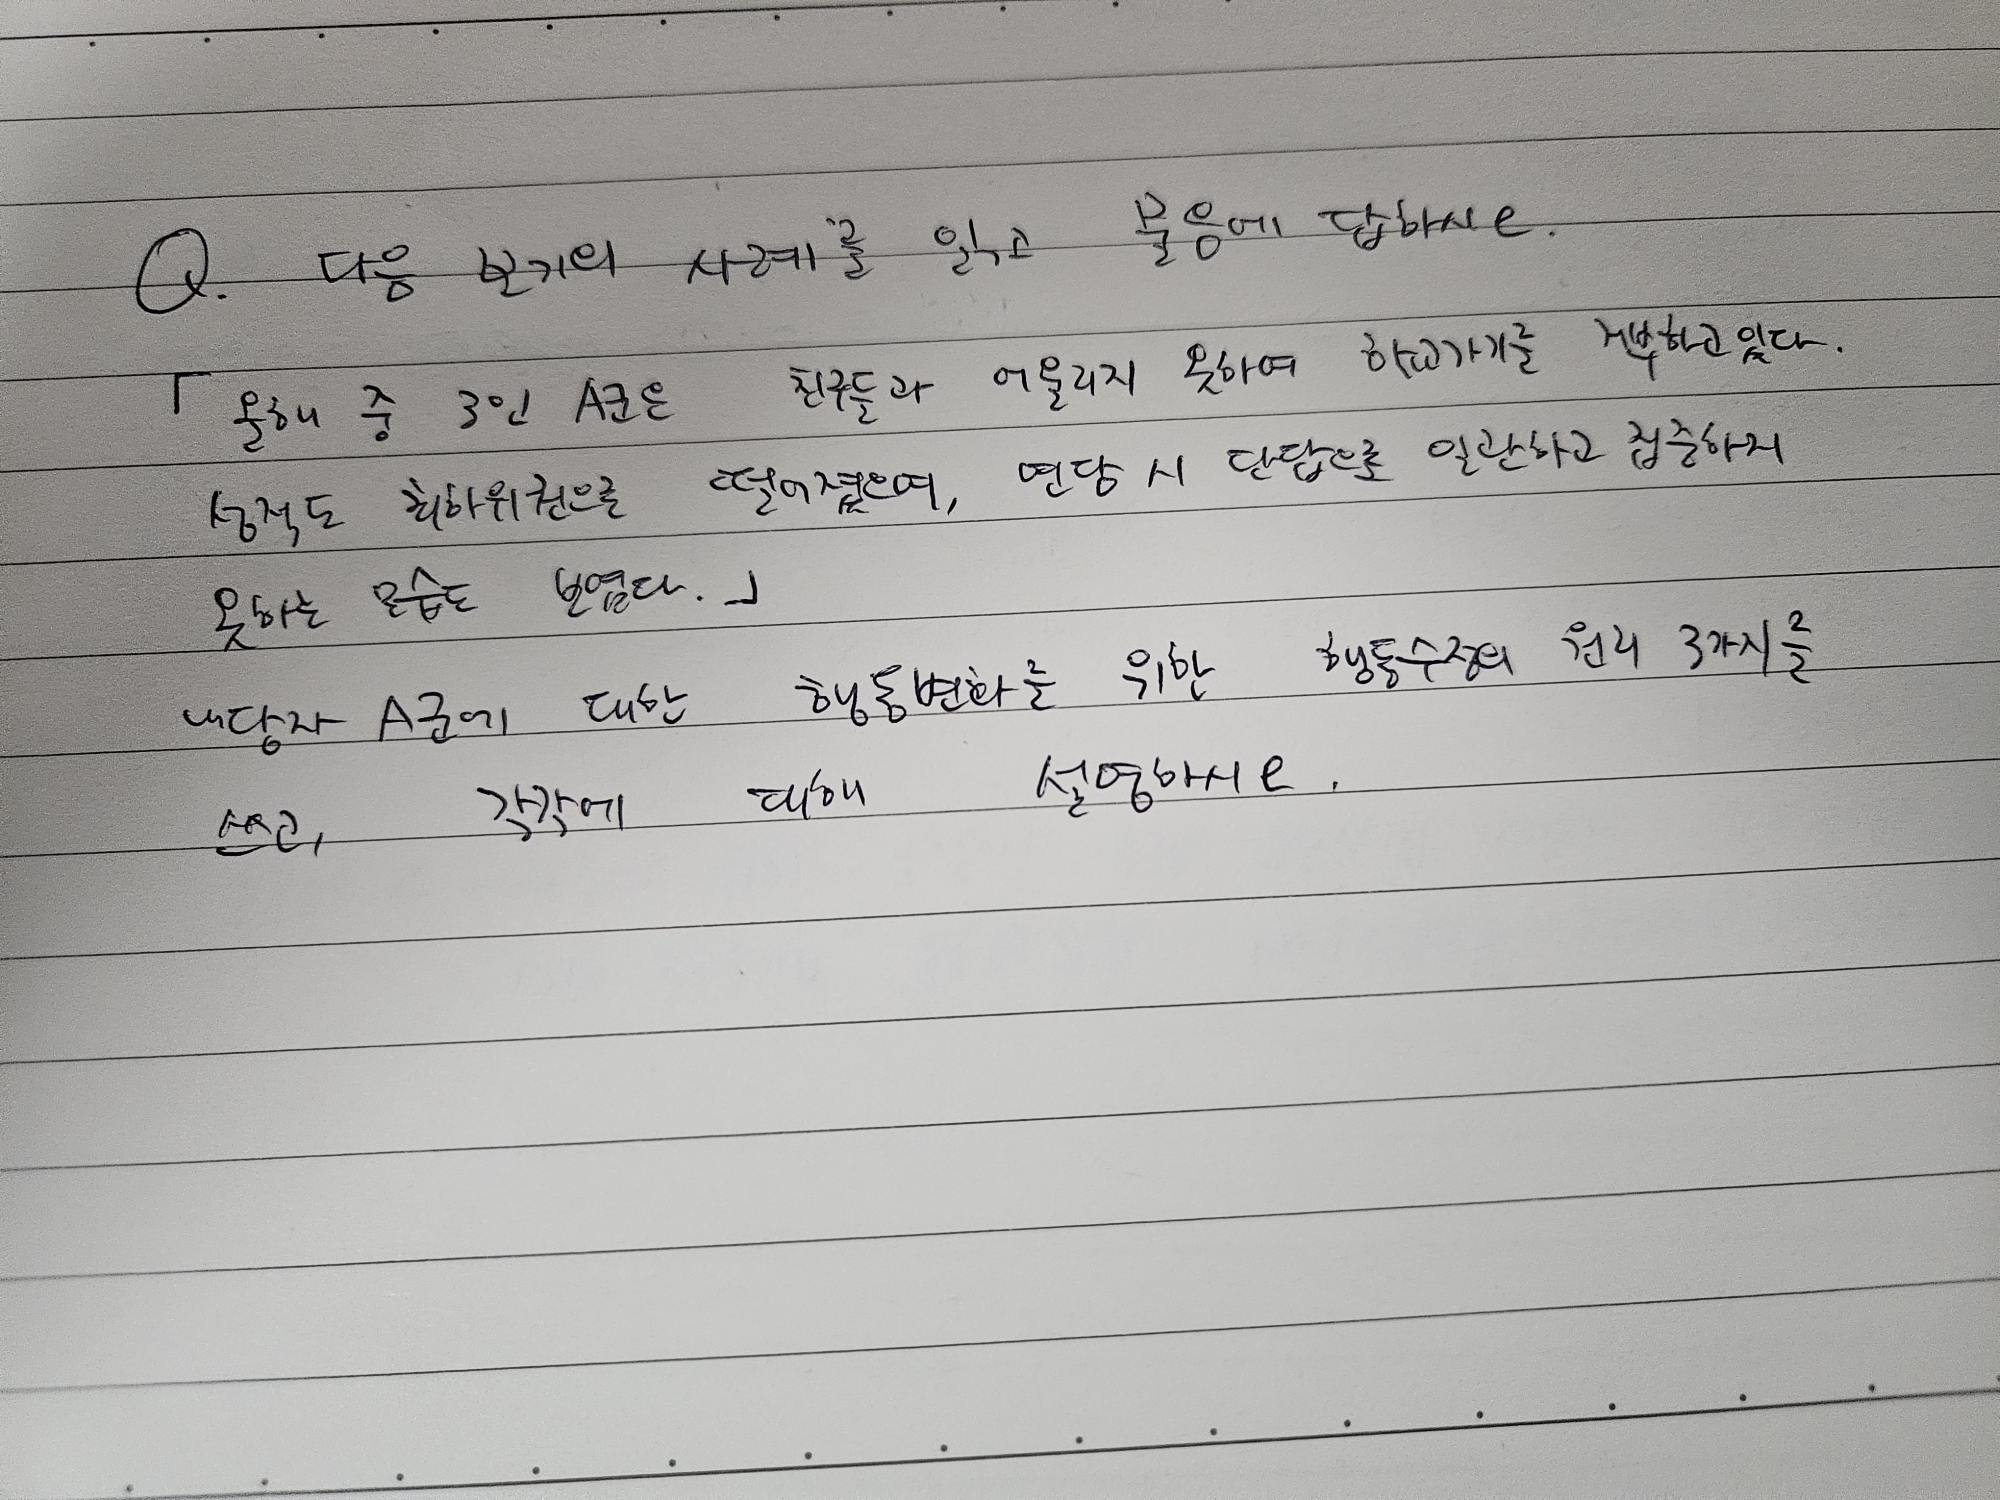 Q. 다음 보기의 사례를 읽고 물음에 답하시오.
「올해 중 3인 A군은 친구들과 어울리지 못하여 학교가기를 거부하고 있다.
성적도 최하위권으로 떨어졌으며, 면담 시 단답으로 일관하고 집중하지
못하는 모습도 보였다.」
내담자 A군에 대한 행동변화를 위한 행동수정의 원리 3가지를
쓰고, 각각에 대해 설명하시오.